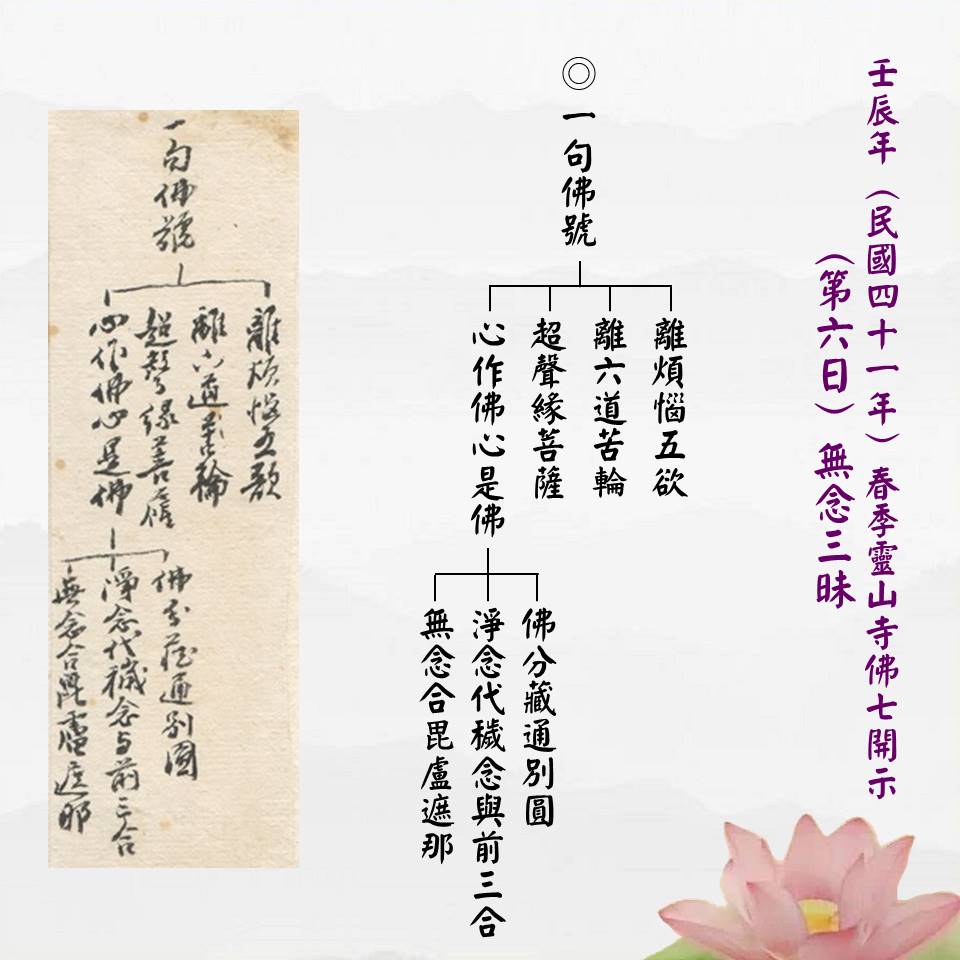 壬辰年（民國四十一年）春季靈山寺佛七開示
（第六日）無念三昧
◎一句佛號
離煩惱五欲
離六道苦輪
超聲緣菩薩
心作佛心是佛
佛分藏通別圓
淨念代穢念與前三合
無念合毘盧遮那
一句佛號
離煩惱五欲
離六道苦輪
超聲緣菩薩
心作佛心是佛
佛分藏通別圓
淨念代穢念与前三合
無念合毘盧遮那